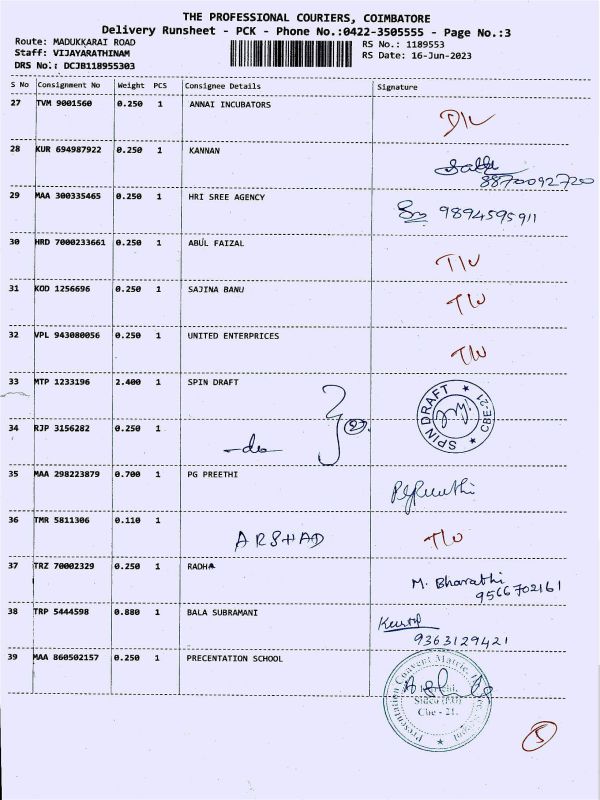 THE PROFESSIONAL COURIERS, COIMBATORE
Delivery Runsheet - PCK - Phone No.:0422-3505555 - Page No.:3
Route: MADUKKARAI ROAD
RS No.: 1189553
Staff: VIJAYARATHINAM
RS Date: 16-Jun-2023
DRS No.: DCJB118955303
S No Consignment No Weight PCS Consignee Details Signature
27 TVM 9001560 0.250 1 ANNAI INCUBATORS
28 KUR 694987922 0.250 1 KANNAN
8870092720
29 MAA 300335465 0.250 1 HRI SREE AGENCY
9894595911
30 HRD 7000233661 0.250 1 ABUL FAIZAL
31 KOD 1256696 0.250 1 SAJINA BANU
32 VPL 943080056 0.250 1 UNITED ENTERPRICES
33 MTP 1233196 2.400 1 SPIN DRAFT
SPIN DRAFT ★ CBE-21. ★
34 RJP 3156282 0.250 1
-do-
35 MAA 298223879 0.700 1 PG PREETHI
36 TMR 5811306 0.110 1
ARSHAD
37 TRZ 70002329 0.250 1 RADHA
M. Bharathi
9566702161
38 TRP 5444598 0.880 1 BALA SUBRAMANI
9363129421
39 MAA 860502157 0.250 1 PRECENTATION SCHOOL
Presentation Convent Matric.
Sidco (P.O)
Cbe - 21.
5